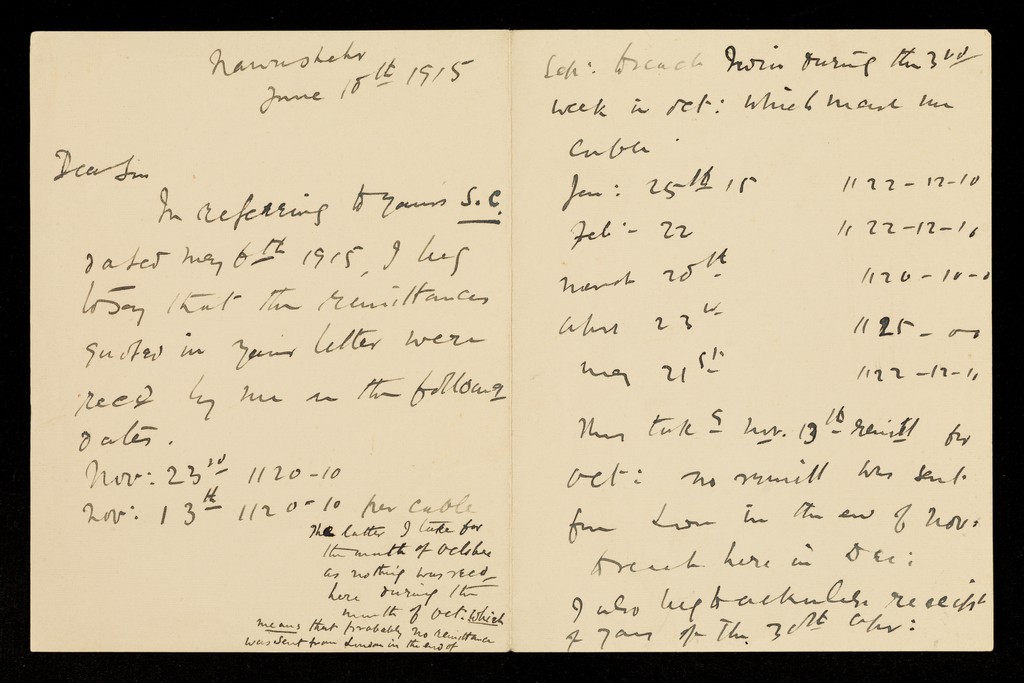 Nawashehr
June 18th 1915
Dear Sir
In referring to yours S.C.
dated may 6th 1915, I beg
to say that the remittances
quoted in your letter were
recd by me on the following
dates.
Nov: 23rd 1120-10
Nov: 13th 1120-10 per cable
The latter I take for
the month of October
as nothing was recd
here during the
month of oct: which
means that probably no remittance
was sent from London in the end of
Sep: to reach India during the 3rd
week in oct: which made me
cable.
Jan: 25th 15 1122-12-10
Feb:- 22 1122-12-11
March 20th 1120-10-0
April 23rd 1125-00
May 21st 1122-12-11
Thus take Nov. 13th remitt for
oct: no remitt was sent
from London in the end of Nov:
to reach here in Dec:
I also beg to acknowledge receipt
of yours of the 30th Apr: